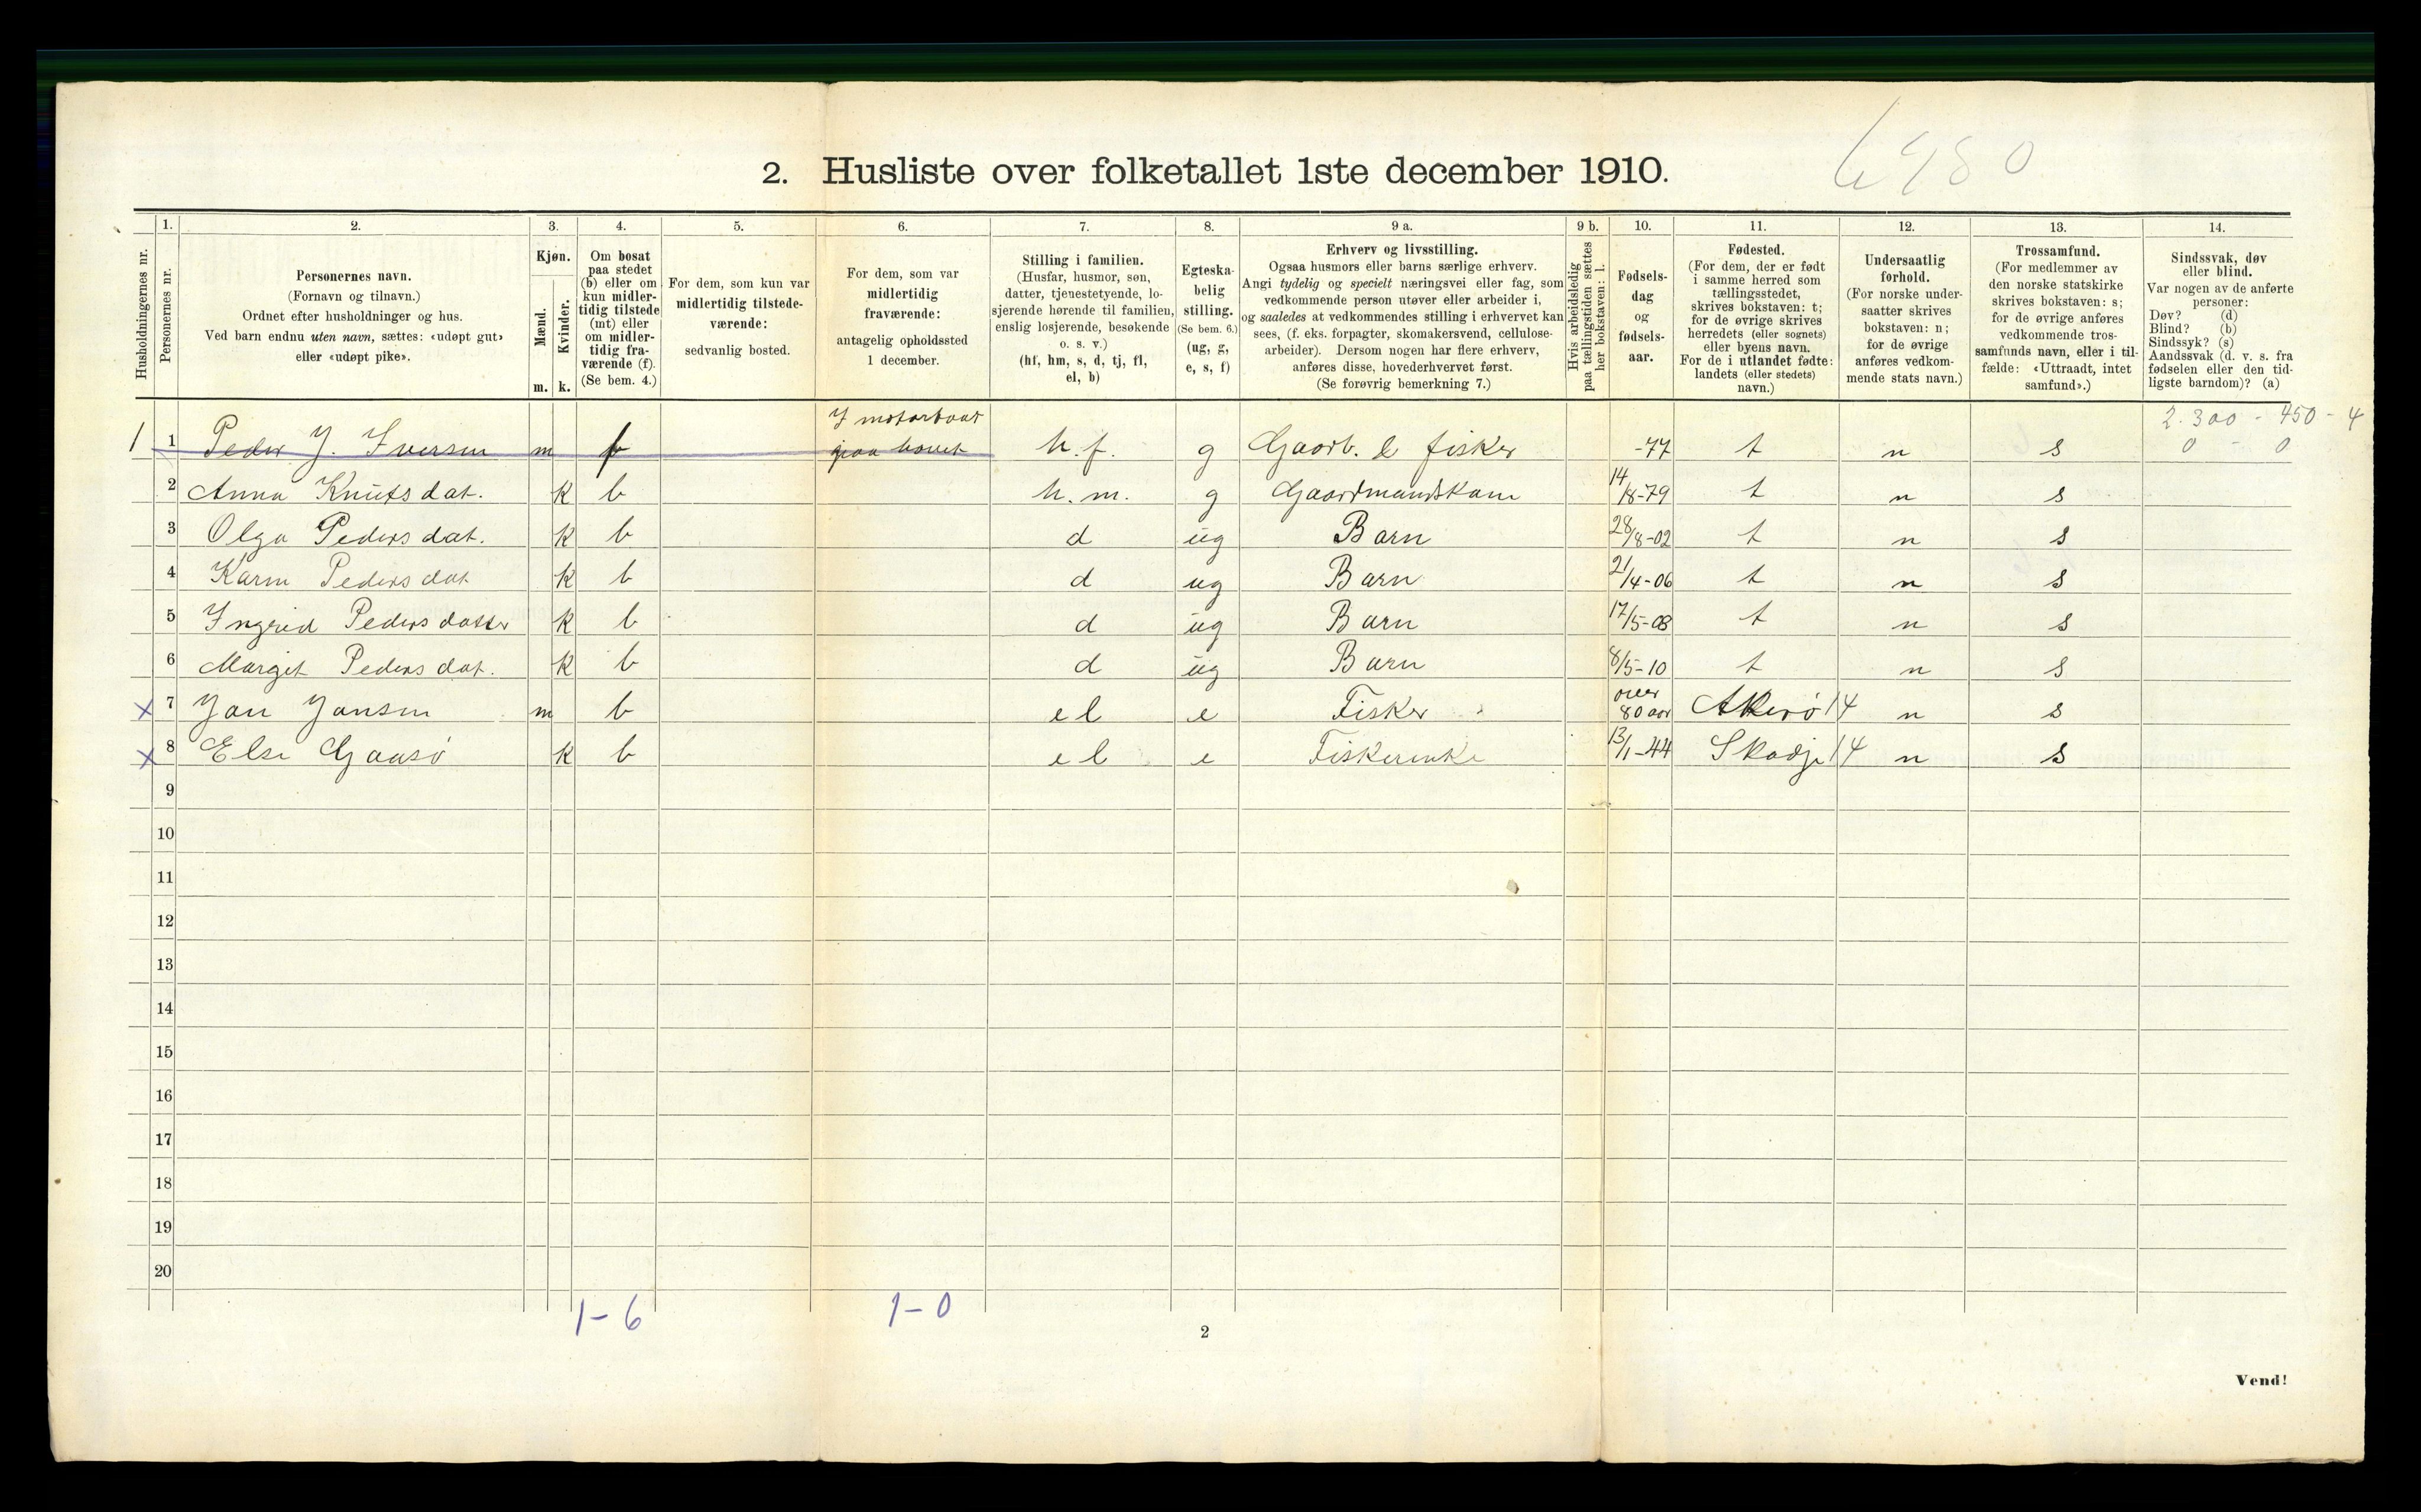 2. Husliste over folketallet 1ste december 1910.
6980
Husholdningernes nr.
1.
Personernes nr.
2.
Personernes navn.
(Fornavn og tilnavn.)
Ordnet efter husholdninger og hus.
Ved barn endnu uten navn, sættes: «udøpt gut»
eller «udøpt pike».
3.
Kjøn.
Mænd.
Kvinder.
m. k.
4.
Om bosat
paa stedet
(b) eller om
kun midler-
tidig tilstede
(mt) eller
om midler-
tidig fra-
værende (f).
(Se bem. 4.)
5.
For dem, som kun var
midlertidig tilstede-
værende:
sedvanlig bosted.
6.
For dem, som var
midlertidig
fraværende:
antagelig opholdssted
1 december.
7.
Stilling i familien.
(Husfar, husmor, søn,
datter, tjenestetyende, lo-
sjerende hørende til familien,
enslig losjerende, besøkende
o. s. v.)
(hf, hm, s, d, tj, fl,
el, b)
8.
Egteska-
belig
stilling.
(Se bem. 6.)
(ug, g,
e, s, f)
9 a.
Erhverv og livsstilling.
Ogsaa husmors eller barns særlige erhverv.
Angi tydelig og specielt næringsvei eller fag, som
vedkommende person utøver eller arbeider i,
og saaledes at vedkommendes stilling i erhvervet kan
sees, (f. eks. forpagter, skomakersvend, cellulose-
arbeider). Dersom nogen har flere erhverv,
anføres disse, hovederhvervet først.
(Se forøvrig bemerkning 7.)
9 b.
Hvis arbeidsledig
paa tællingstiden sættes
her bokstaven: l.
10.
Fødsels-
dag
og
fødsels-
aar.
11.
Fødested.
(For dem, der er født
i samme herred som
tællingsstedet,
skrives bokstaven: t;
for de øvrige skrives
herredets (eller sognets)
eller byens navn.
For de i utlandet fødte:
landets (eller stedets)
navn.)
12.
Undersaatlig
forhold.
(For norske under-
saatter skrives
bokstaven: n;
for de øvrige
anføres vedkom-
mende stats navn.)
13.
Trossamfund.
(For medlemmer av
den norske statskirke
skrives bokstaven: s;
for de øvrige anføres
vedkommende tros-
samfunds navn, eller i til-
fælde: «Uttraadt, intet
samfund».)
14.
Sindssvak, døv
eller blind.
Var nogen av de anførte
personer:
Døv? (d)
Blind? (b)
Sindssyk? (s)
Aandssvak (d. v. s. fra
fødselen eller den tid-
ligste barndom)? (a)
I motorbaat 2.300 - 450 - 4
1 1 Peder J. Iversen m f paa havet h. f. g Gaarb. & fisker -77 t n s 0 - 0
2 Anna Knutsdat. k b h. m. g Gaardmandskone 14/8-79 t n s
3 Olga Pedersdat. k b d ug Barn 28/8-02 t n s
4 Karen Pedersdat k b d ug Barn 21/4-06 t n s
5 Ingrid Pedersdatter k b d ug Barn 17/5-08 t n s
6 Marget Pedersdat. k b d ug Barn 8/5-10 t n s
x 7 Jon Jonsen m b el e Fisker over 80 aar Akerø 14 n s
x 8 Else Gaasø k b el e Fiskerenke 13/1-44 Skodje 14 n s
9
10
11
12
13
14
15
16
17
18
19
20
1-6 1-0
2
Vend!